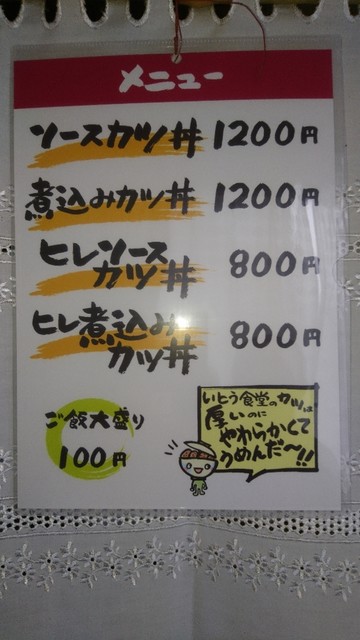 メニュー
ソースカツ丼 1200円
煮込みカツ丼 1200円
ヒレソース
カツ丼 800円
ヒレ煮込み
カツ丼 800円
ご飯大盛り
100円
いとう食堂のカツは
厚いのに
やわらかくて
うめんだ〜!!